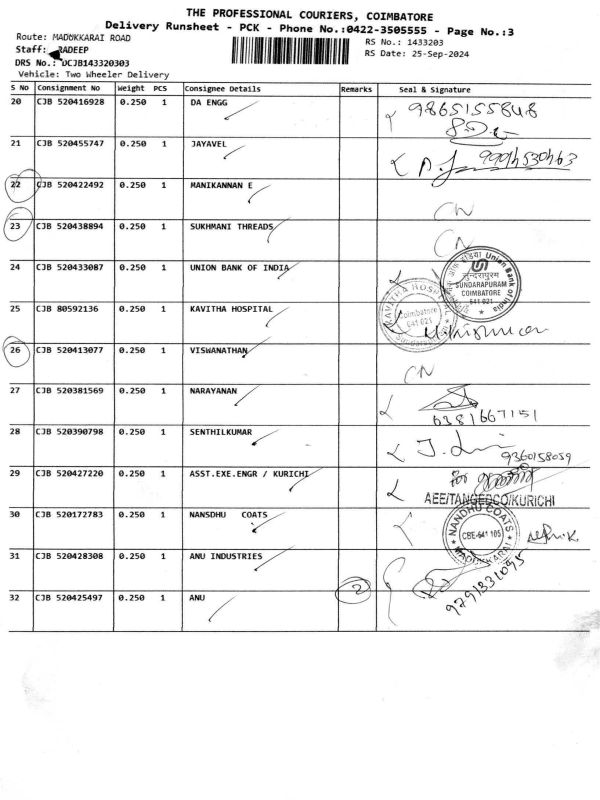 THE PROFESSIONAL COURIERS, COIMBATORE
Delivery Runsheet - PCK - Phone No.:0422-3505555 - Page No.:3
Route: MADUKKARAI ROAD
RS No.: 1433203
Staff: RADEEP
RS Date: 25-Sep-2024
DRS No.: DCJB143320303
Vehicle: Two Wheeler Delivery
S No Consignment No Weight PCS Consignee Details Remarks Seal & Signature
20 CJB 520416928 0.250 1 DA ENGG 9865155848
21 CJB 520455747 0.250 1 JAYAVEL
22 CJB 520422492 0.250 1 MANIKANNAN E CN
23 CJB 520438894 0.250 1 SUKHMANI THREADS CN
24 CJB 520433087 0.250 1 UNION BANK OF INDIA
Union Bank of India
सुन्दरापुरम
SUNDARAPURAM
COIMBATORE
641 021
25 CJB 80592136 0.250 1 KAVITHA HOSPITAL
KAVITHA HOSPITAL
Coimbatore
641 021
26 CJB 520413077 0.250 1 VISWANATHAN CN
27 CJB 520381569 0.250 1 NARAYANAN 6381667151
28 CJB 520390798 0.250 1 SENTHILKUMAR 9360158059
29 CJB 520427220 0.250 1 ASST.EXE.ENGR / KURICHI
AEE/TANGEDCO/KURICHI
30 CJB 520172783 0.250 1 NANSDHU COATS
NANDHU COATS
CBE-641 105
MADUKKARAI
31 CJB 520428308 0.250 1 ANU INDUSTRIES
9791331095
32 CJB 520425497 0.250 1 ANU 2